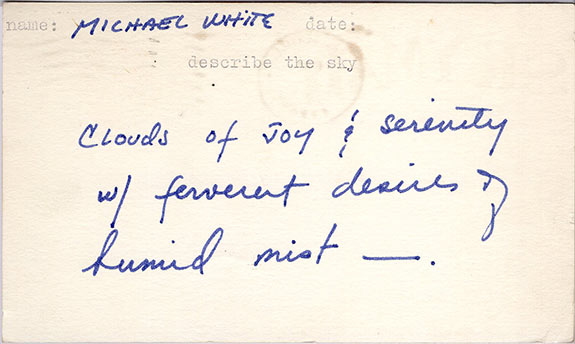 name: MICHAEL WHITE date:
describe the sky
Clouds of Joy & serenity
w/ ferverent desires of
humid mist —.